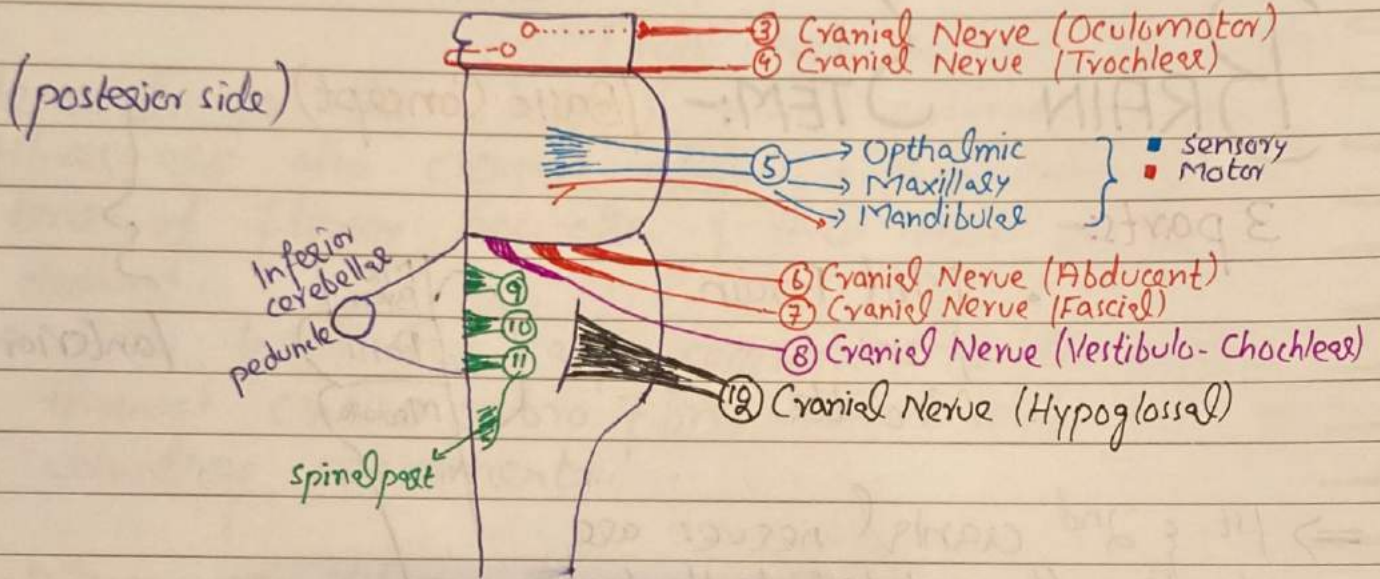 ③ Cranial Nerve (Oculomotor)
④ Cranial Nerve (Trochlear)
(posterior side)
⑤
Opthalmic
Maxillary
Mandibular
Sensory
Motor
Inferior
cerebellar
peduncle
⑥ Cranial Nerve (Abducent)
⑦ Cranial Nerve (Fascial)
⑧ Cranial Nerve (Vestibulo-Chochlear)
⑨
⑩
⑪
⑫ Cranial Nerve (Hypoglossal)
spinal part